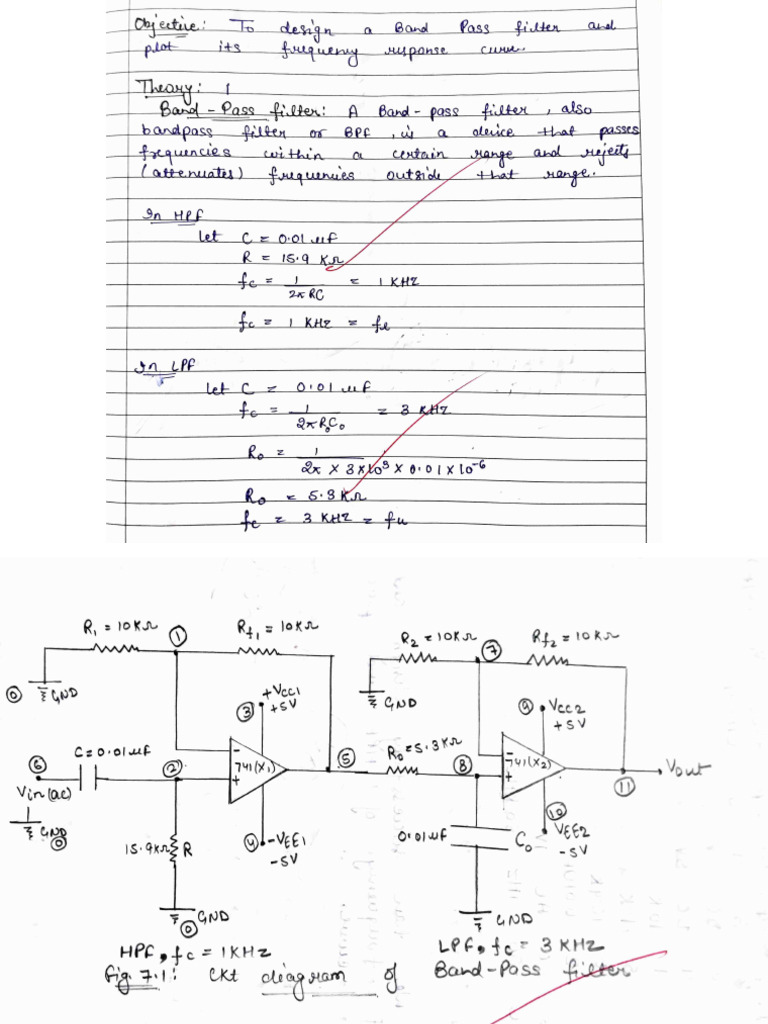 Objective: To design a Band Pass filter and
plot its frequency response curve.
Theory: 1
Band-Pass filter: A Band-pass filter, also
bandpass filter or BPF, is a device that passes
frequencies within a certain range and rejects
(attenuates) frequencies outside that range.
In HPF
let C = 0.01 μf
R = 15.9 KΩ
fc = 1/2πRC = 1 KHZ
fc = 1 KHZ = fl
In LPF
let C = 0.01 μf
fc = 1/2πR₀C₀ = 3 KHZ
R₀ = 1/2π × 3×10³ × 0.01×10⁻⁶
R₀ = 5.3 KΩ
fc = 3 KHZ = fu
R₁ = 10KΩ
①
Rf₁ = 10KΩ
R₂ = 10KΩ
⑦
Rf₂ = 10KΩ
⓪ GND
③ +VCC1
+5V
GND
⑨ VCC2
+5V
⑥
C=0.01μf
②
-
741(X₁)
+
⑤
R₀=5.3KΩ
⑧
-
741(X₂)
+
Vout
⑪
Vin(ac)
GND
⓪
15.9KΩ R
④ -VEE1
-5V
0.01μf C₀
⑩
VEE2
-5V
GND
⓪
GND
HPF, fc = 1KHZ
LPF, fc = 3 KHZ
Fig. 7.1: CKt diagram of Band-Pass filter